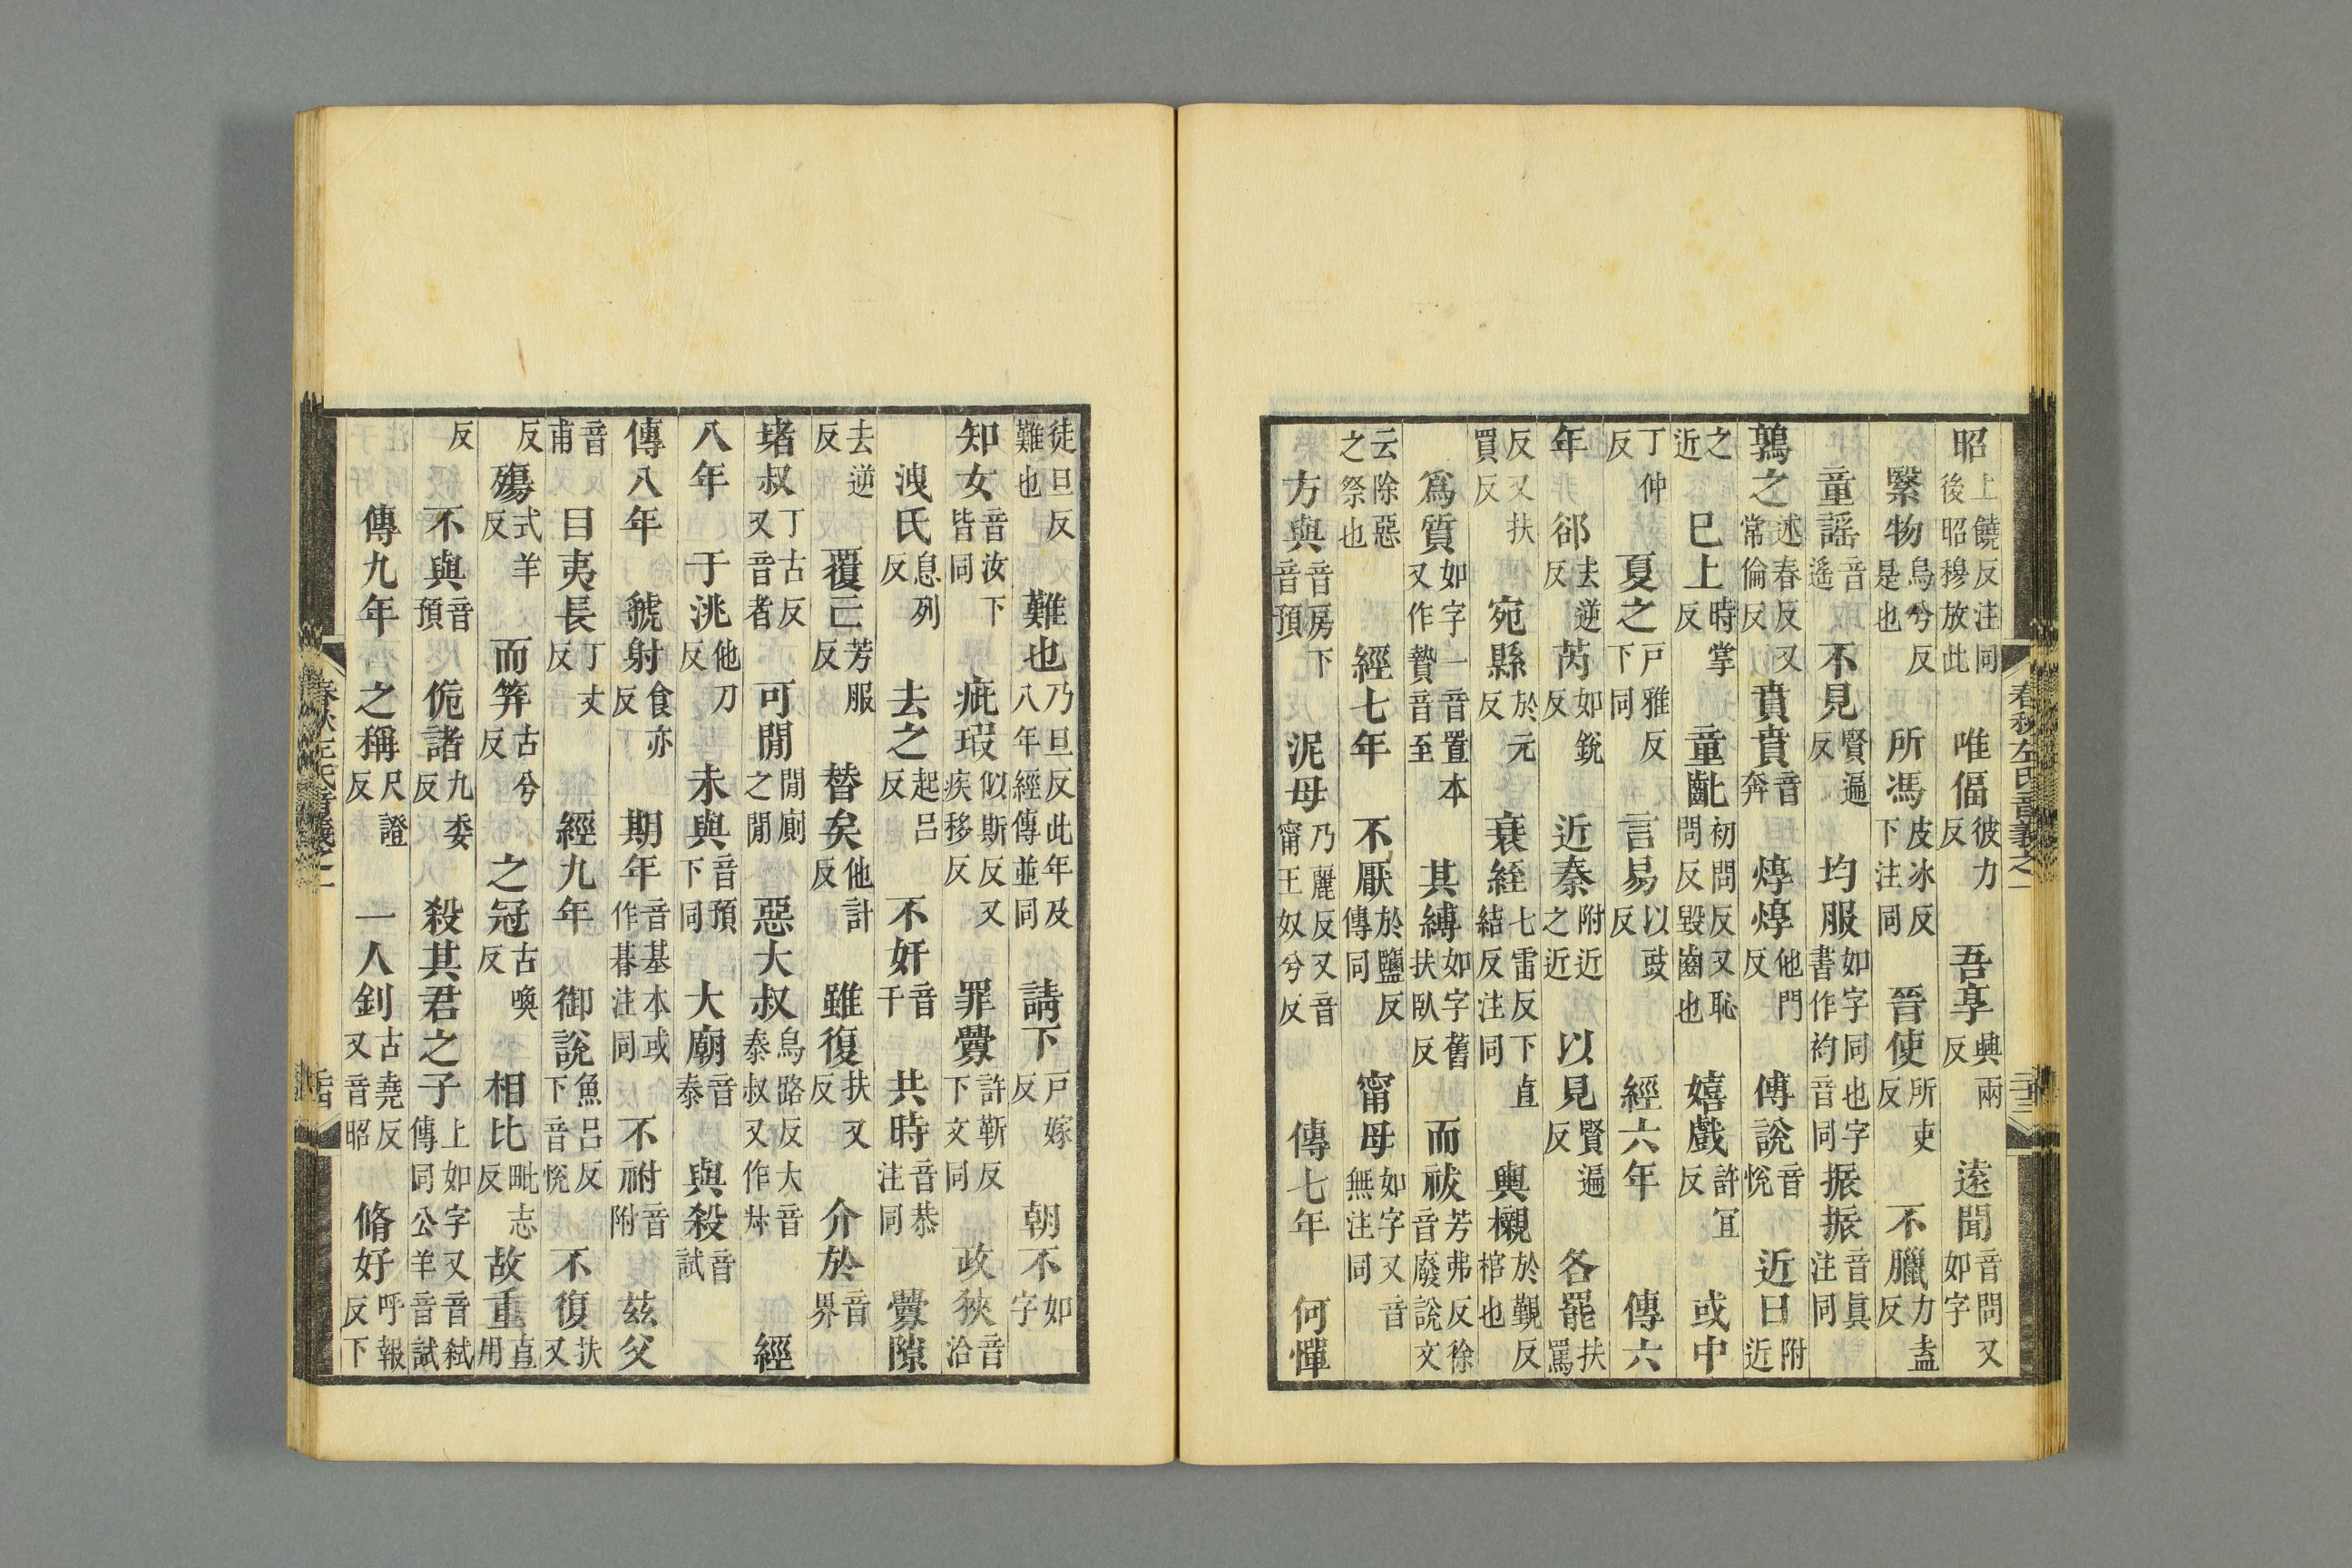 春秋左氏音義之一 二十三
昭上饒反注同後昭穆放此 唯偪彼力反 吾享興兩反 遠聞音問又如字
繄物烏兮反是也 所馮皮冰反下注同 晉使所吏反 不臘力盍反
童謠音遙 不見賢遍反 均服如字同也字書作袀音同 振振音眞注同
鶉之述春反又常倫反 賁賁音奔 焞焞他門反 傅說音悅 近日附近
之近 巳上時掌反 童齔初問反又恥問反毀齒也 嬉戲許宜反 或中
丁仲反 夏之戶雅反下同 言易以豉反 經六年 傳六
年 郤去逆反 芮如銳反 近秦附近之近 以見賢遍反 各罷扶罵
反又扶買反 宛縣於元反 衰絰七雷反下直結反注同 輿櫬於覲反棺也
爲質如字一音置本又作贄音至 其縛如字舊扶臥反 而祓芳弗反徐音廢說文
云除惡之祭也 經七年 不厭於鹽反傳同 甯母如字又音無注同
方與音房下音預 泥母乃麗反又音甯王奴兮反 傳七年 何憚
徒旦反難也 難也乃旦反此年及八年經傳並同 請下戶嫁反 朝不如字
知女音汝下皆同 疵瑕似斯反又疾移反 罪釁許靳反下文同 政狹音洽
洩氏息列反 去之起呂反 不奸音干 共時音恭注同 釁隙
去逆反 覆已芳服反 替矣他計反 雖復扶又反 介於音界
堵叔丁古反又音者 可閒閒廁之閒 惡大叔烏路反大音泰叔又作尗 經
八年 于洮他刀反 未與音預下同 大廟音泰 與殺音試
傳八年 虢射食亦反 期年音基本或作朞注同 不祔音附 茲父
音甫 曰夷長丁丈反 經九年 御說魚呂反下音悅 不復扶又
反 殤式羊反 而筓古兮反 之冠古喚反 相比毗志反 故重直用
反 不與音預 佹諸九委反 殺其君之子上如字又音弒傳同公羊音試
傳九年 之稱尺證反 一人釗古堯反又音昭 脩好呼報反下